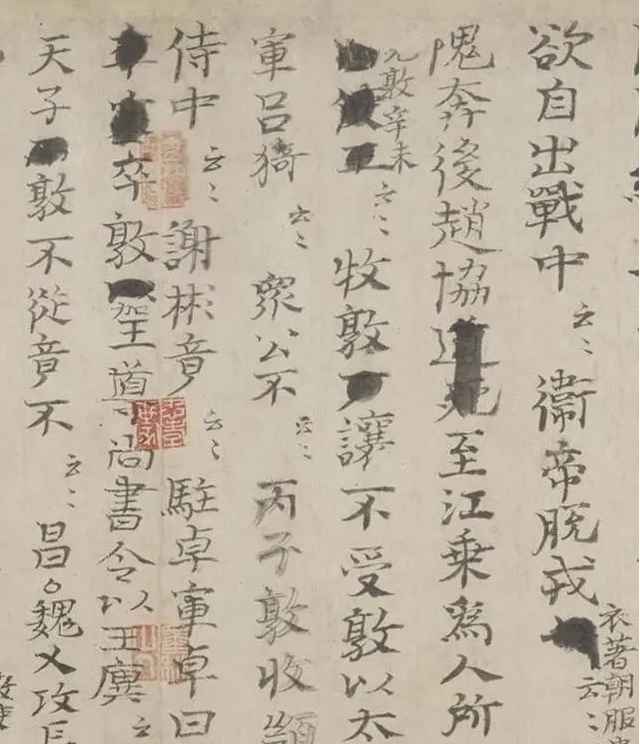 欲自出戰中云〻衛帝脱戎
衣著朝服云〻
隗奔後趙協道死至江乘為人所
敦辛未云〻
牧敦讓不受敦以太
軍呂猗云〻衆公不云〻丙子敦收
侍中云〻謝彬音云〻駐卓軍卓曰
卒敦王導尚書令以王廙云
天子敦不從音不云〻昌○魏乂攻長